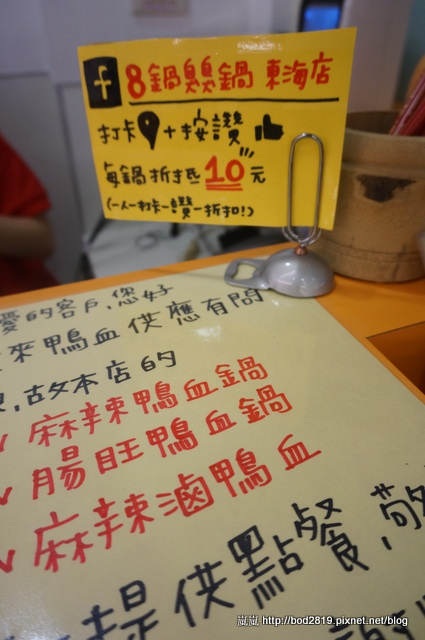 f 8鍋臭臭鍋 東海店
打卡+按讚
每鍋折抵10元
(一人一打卡一讚一折扣!)
愛的客戶,您好
來鴨血供應有問
,故本店的
麻辣鴨血鍋
腸旺鴨血鍋
麻辣滷鴨血
提供點餐,敬
嵐嵐 http://bod2819.pixnet.net/blog